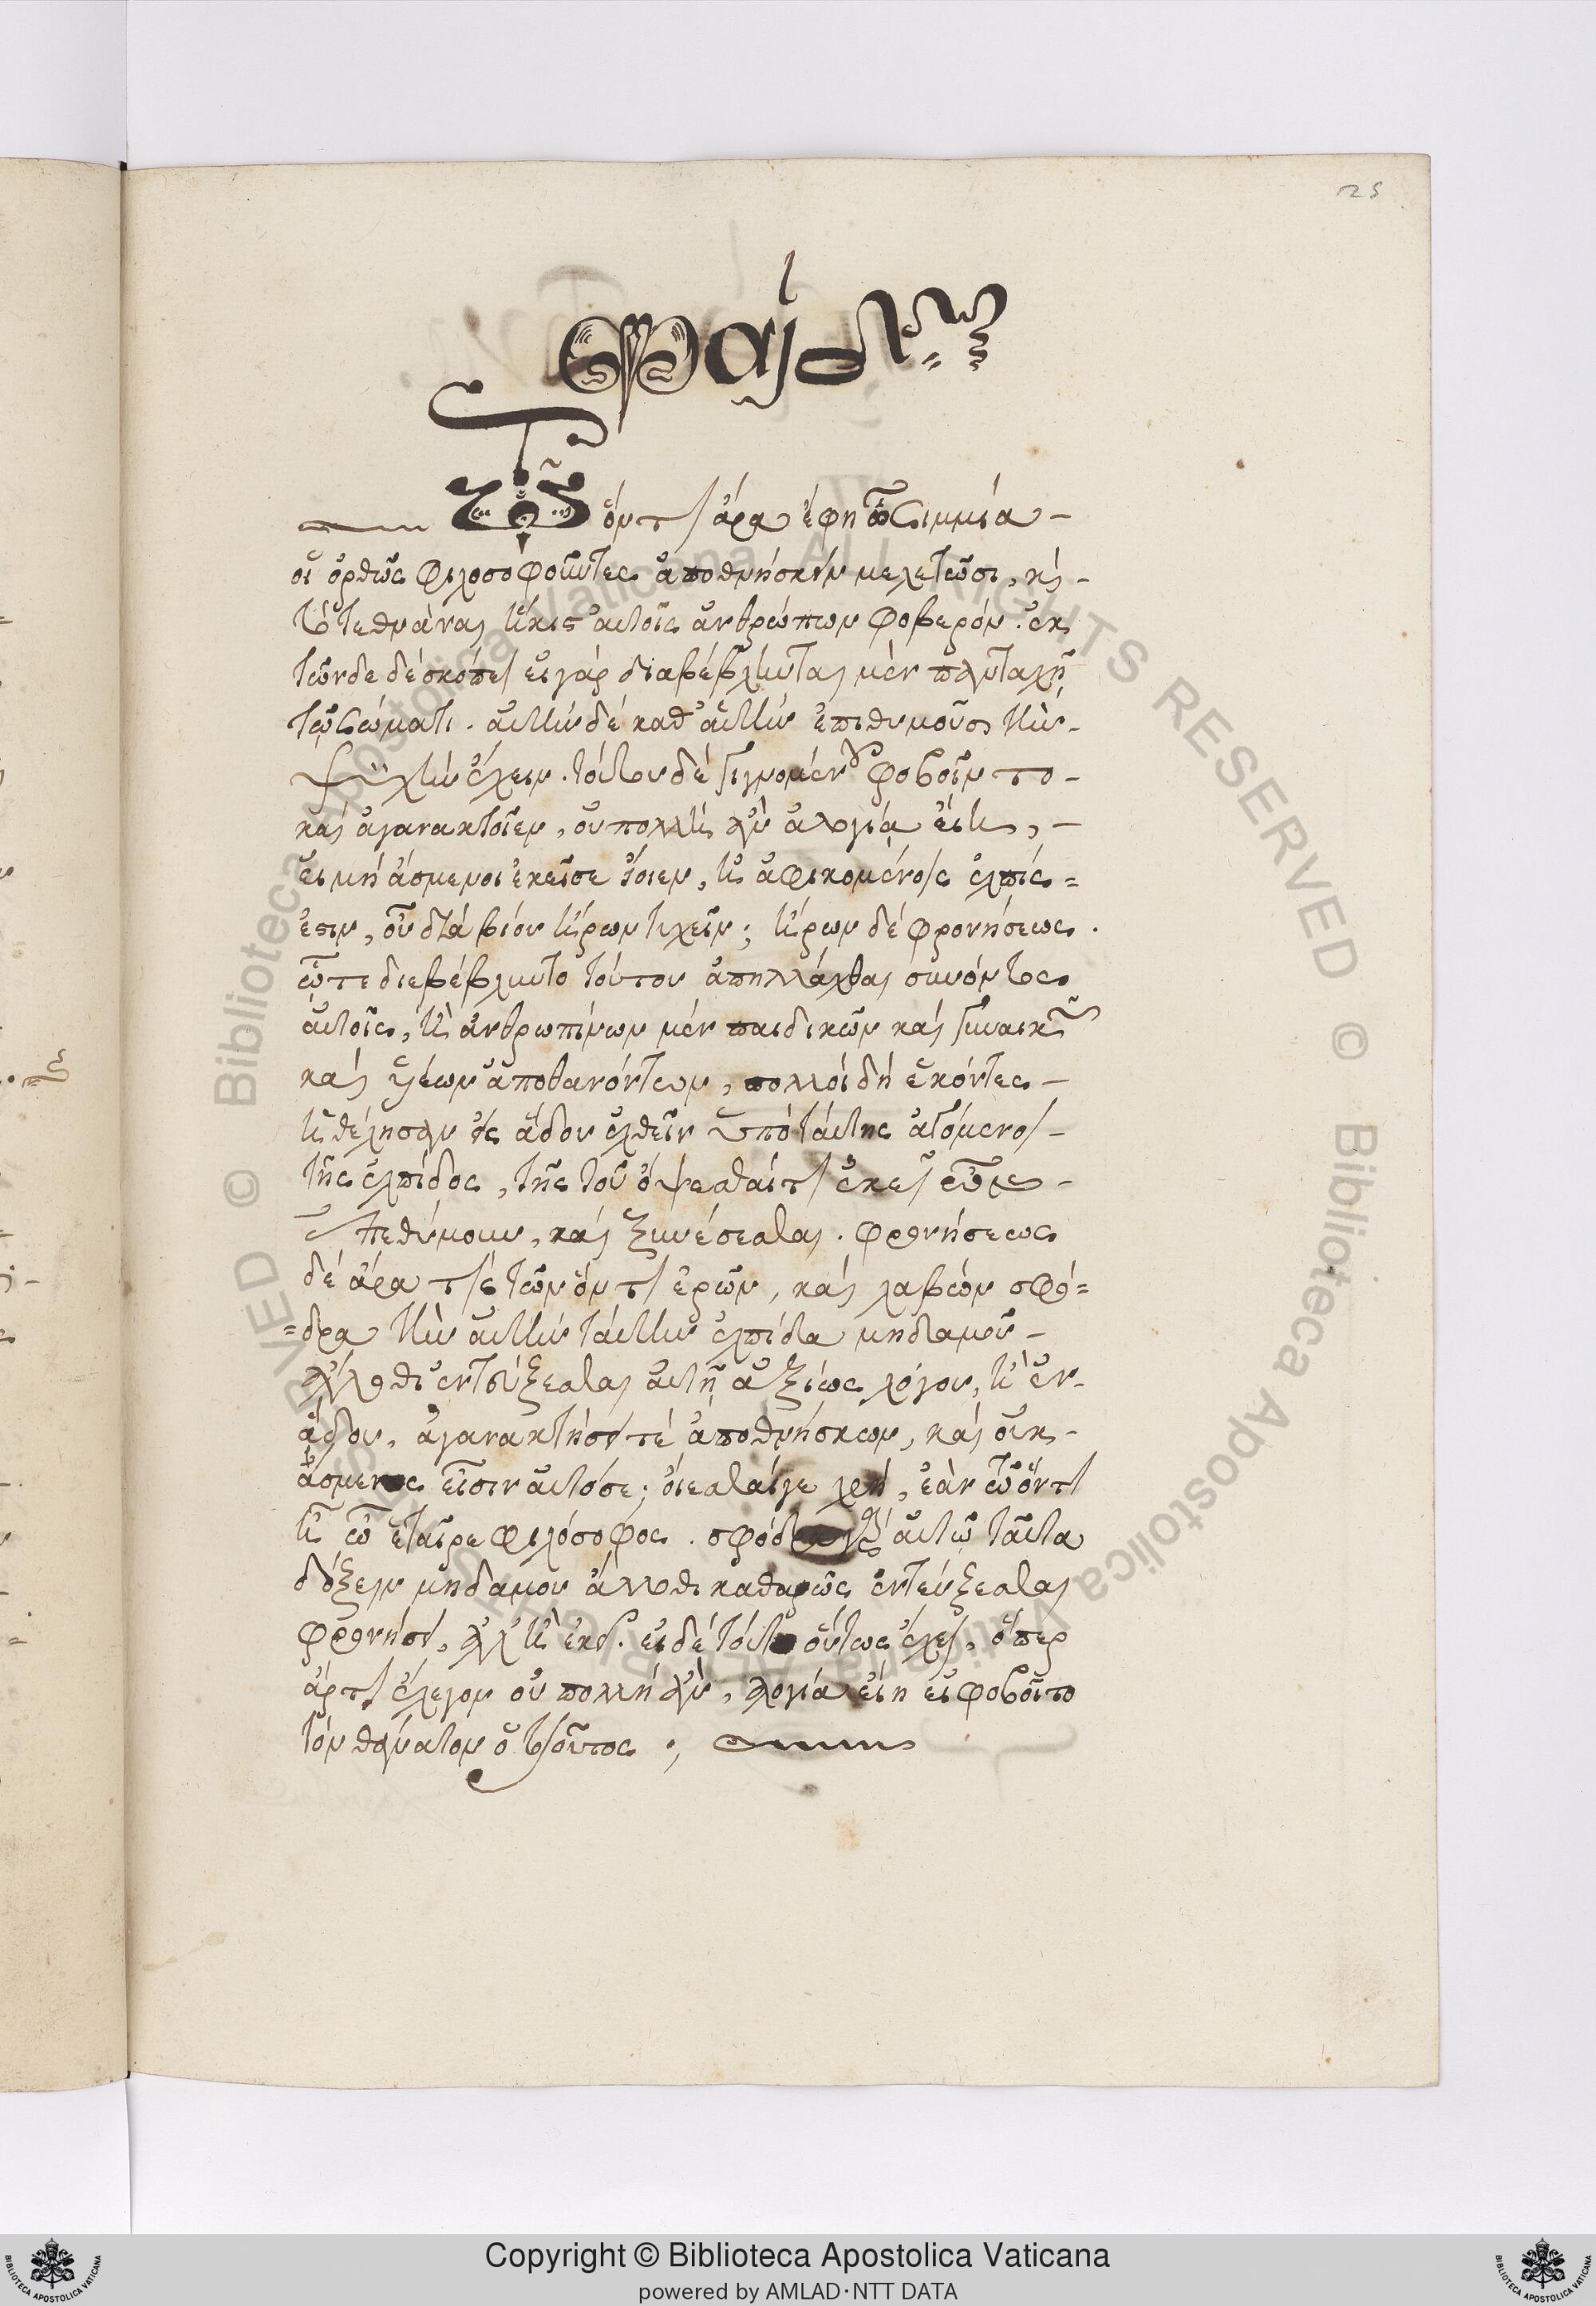 25
Φαίδων
Τῶ ὄντι ἄρα ἔφη ὦ Σιμμία
οἱ ὀρθῶς φιλοσοφοῦντες ἀποθνήσκειν μελετῶσι, καὶ
τὸ τεθνάναι ἥκιστ' αὐτοῖς ἀνθρώπων φοβερόν. ἐκ
τῶνδε δὲ σκόπει εἰ γὰρ διαβέβληνται μὲν πανταχῆ
τῷ σώματι. αὐτὴν δὲ καθ' αὑτὴν ἐπιθυμοῦσι τὴν
ψυχὴν ἔχειν. τούτου δὲ γιγνομένου φοβοῖντο
καὶ ἀγανακτοῖεν, οὐ πολλὴ ἂν ἀλογία εἴη,
εἰ μὴ ἄσμενοι ἐκεῖσε ἴοιεν, οἷ ἀφικομένοις ἐλπίς
ἐστιν, οὗ διὰ βίου ἤρων τυχεῖν; ἤρων δὲ φρονήσεως.
ᾧ τε διεβέβληντο τούτου ἀπηλλάχθαι συνόντος
αὐτοῖς, ἢ ἀνθρωπίνων μὲν παιδικῶν καὶ γυναικῶν
καὶ υἱέων ἀποθανόντων, πολλοὶ δὴ ἑκόντες
ἠθέλησαν εἰς ᾅδου ἐλθεῖν ὑπὸ ταύτης ἀγόμενοι
τῆς ἐλπίδος, τῆς τοῦ ὄψεσθαί τι ἐκεῖ ὧν
ἐπεθύμουν, καὶ ξυνέσεσθαι. φρονήσεως
δὲ ἄρα τις τῶν ὄντι ἐρῶν, καὶ λαβὼν σφό=
=δρα τὴν αὐτὴν ταύτην ἐλπίδα μηδαμοῦ
ἄλλοθι ἐντεύξεσθαι αὐτῇ ἀξίως λόγου, ἢ ἐν
ᾅδου, ἀγανακτήσει τε ἀποθνήσκων, καὶ οὐκ
ἄσμενος εἶσιν αὐτόσε; οἴεσθαί γε χρή, ἐὰν τῷ ὄντι
ᾖ ὦ ἑταῖρε φιλόσοφος. σφόδρα γὰρ αὐτῷ ταῦτα
δόξειν μηδαμοῦ ἄλλοθι καθαρῶς ἐντεύξεσθαι
φρονήσει, ἀλλ' ἢ ἐκεῖ. εἰ δὲ τοῦτο οὕτως ἔχει, ὅπερ
ἄρτι ἔλεγον οὐ πολλὴ ἂν, ἀλογία εἴη εἰ φοβοῖτο
τὸν θάνατον ὁ τοιοῦτος ;
Copyright © Biblioteca Apostolica Vaticana
powered by AMLAD·NTT DATA